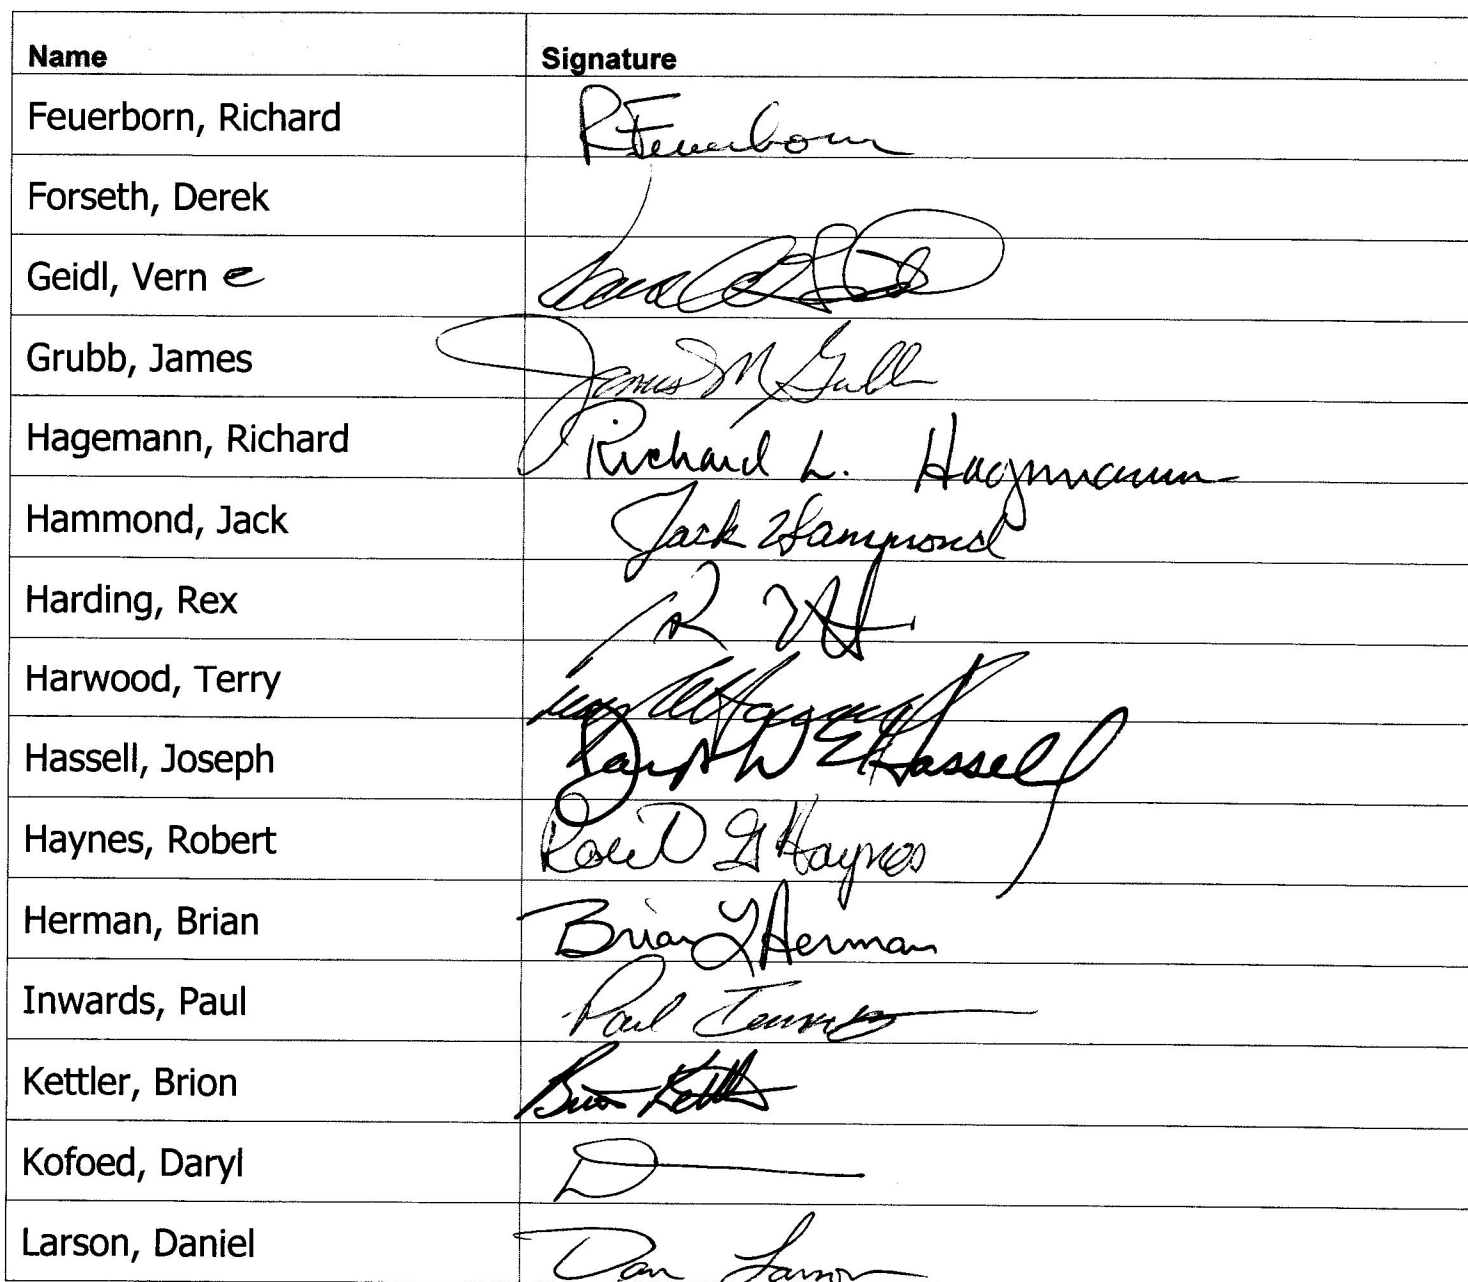 Name Signature
Feuerborn, Richard RFeuerborn
Forseth, Derek
Geidl, Vern e
Grubb, James James M Grubb
Hagemann, Richard Richard L. Hagemann
Hammond, Jack Jack Hammond
Harding, Rex R
Harwood, Terry
Hassell, Joseph Joseph W E Hassell
Haynes, Robert Robert G Haynes
Herman, Brian Brian L Herman
Inwards, Paul Paul Inwards
Kettler, Brion Brion Kettler
Kofoed, Daryl D
Larson, Daniel Dan Larson